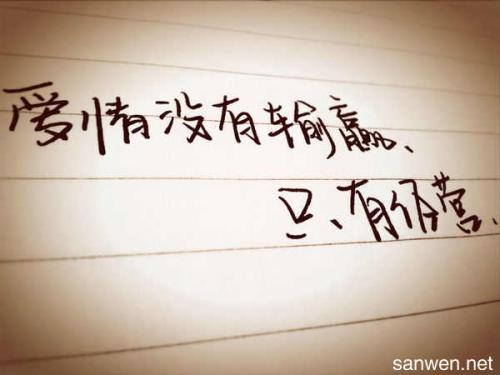 爱情没有输赢、
只有经营、
sanwen.net